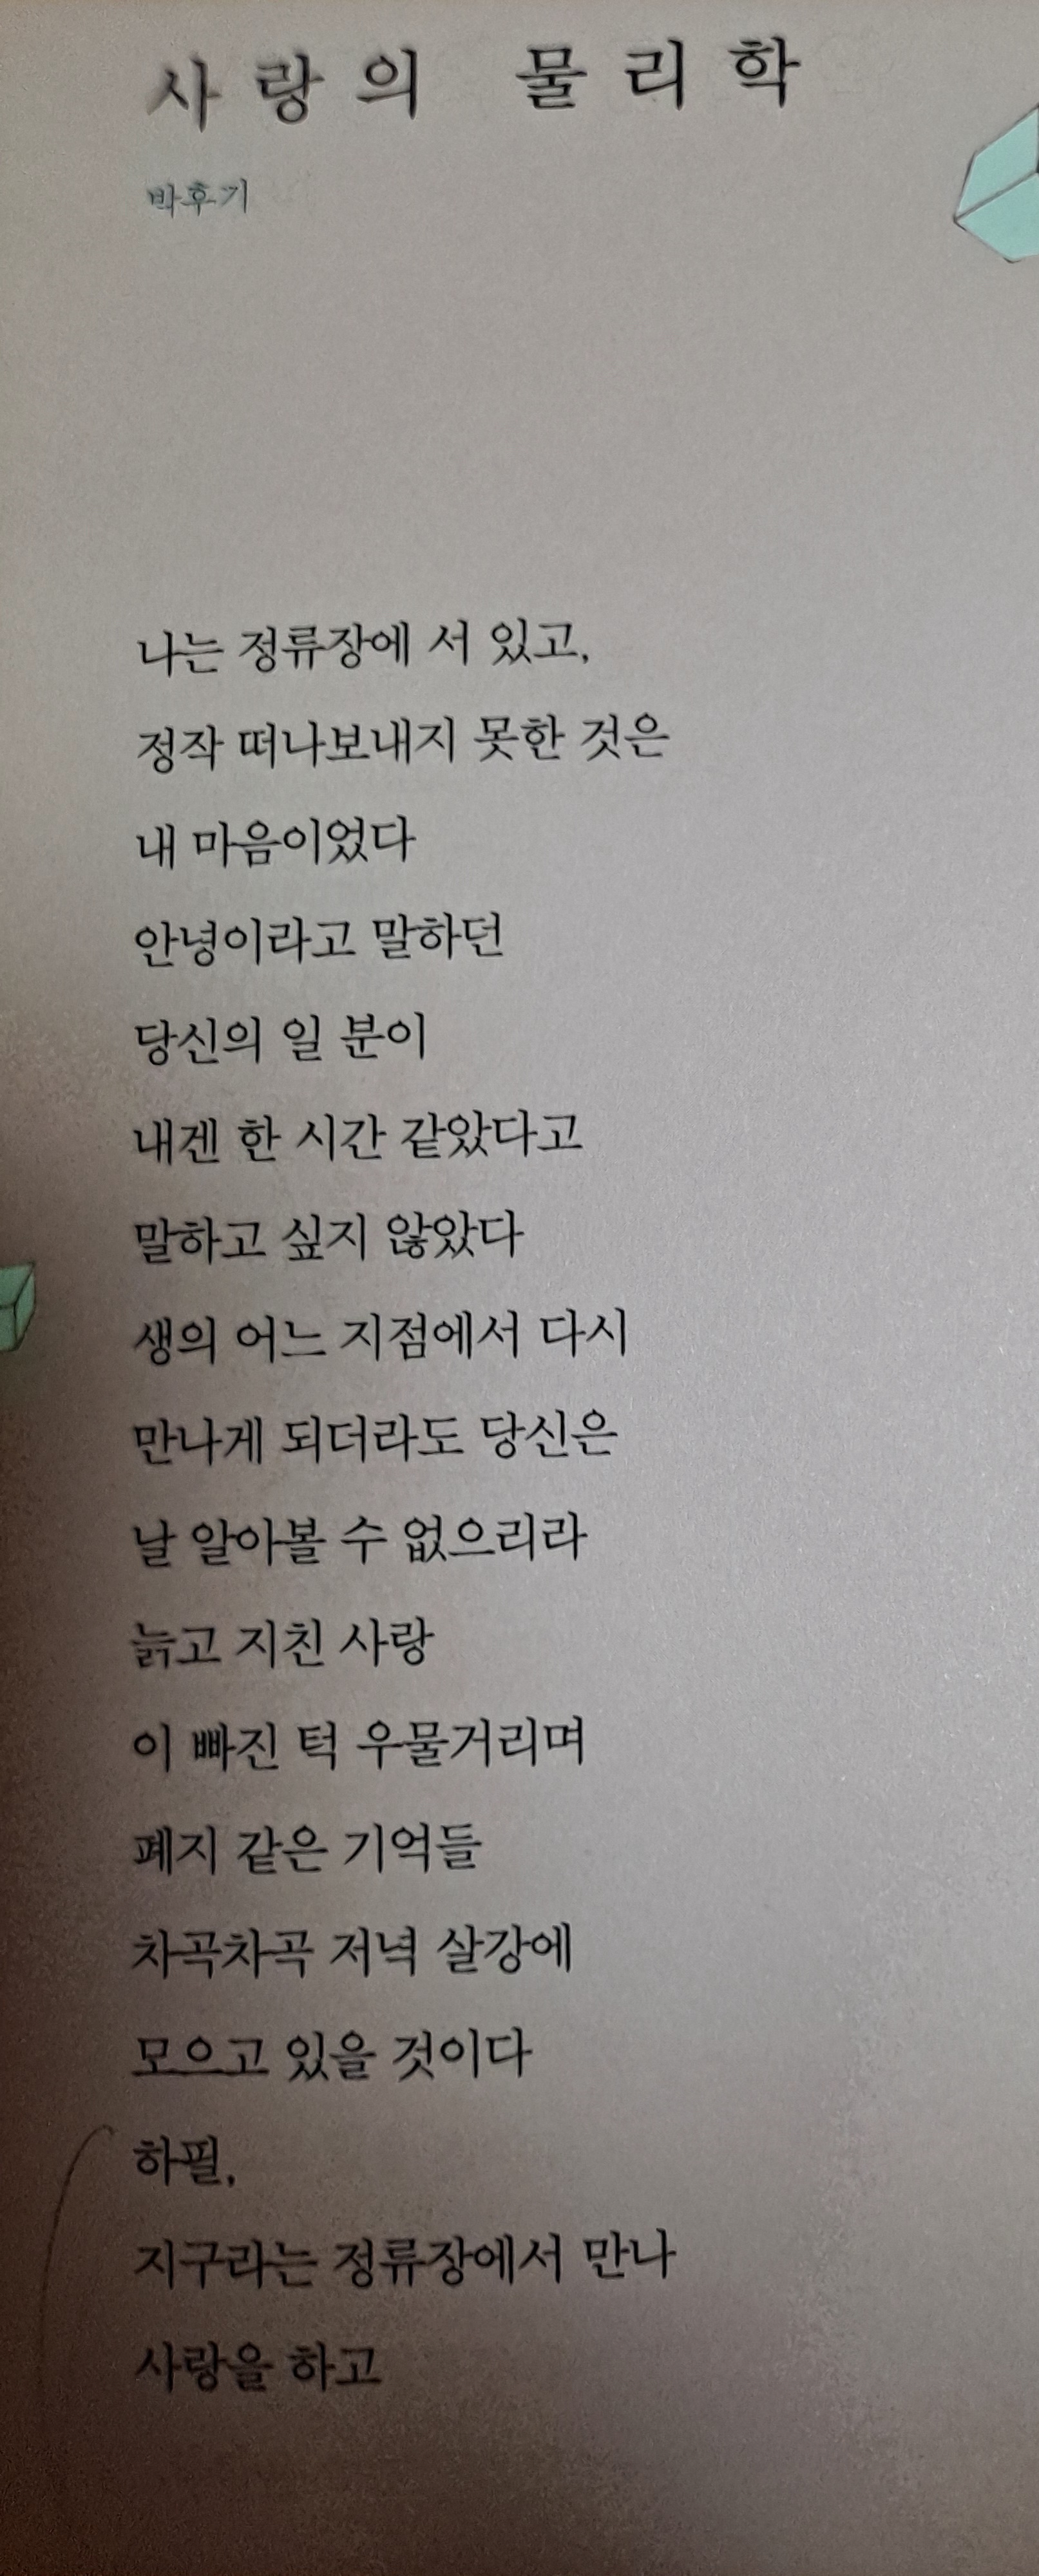 사랑의 물리학
박후기
나는 정류장에 서 있고,
정작 떠나보내지 못한 것은
내 마음이었다
안녕이라고 말하던
당신의 일 분이
내겐 한 시간 같았다고
말하고 싶지 않았다
생의 어느 지점에서 다시
만나게 되더라도 당신은
날 알아볼 수 없으리라
늙고 지친 사랑
이 빠진 턱 우물거리며
폐지 같은 기억들
차곡차곡 저녁 살강에
모으고 있을 것이다
하필,
지구라는 정류장에서 만나
사랑을 하고